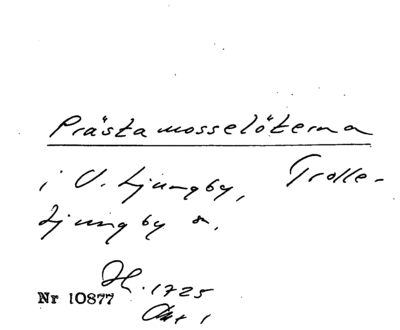 Prästamosselöterna
i V. Ljungby, Trolle-
Ljungby s.
H. 1725
Nr 10877
Akt 1